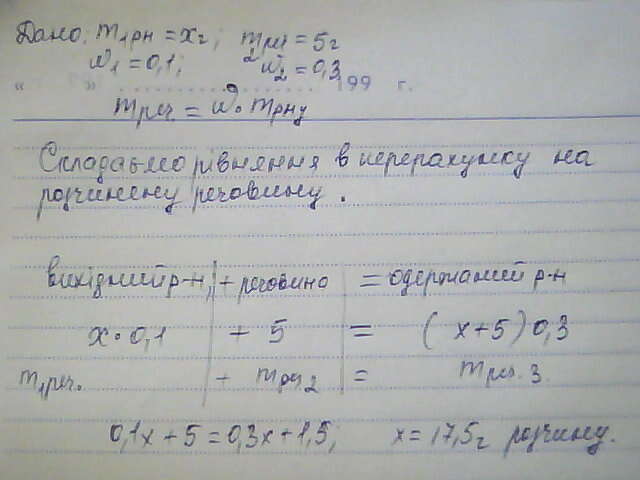 Дано: m₁рн = xг; m₂реч = 5г
ω₁ = 0,1; ω₂ = 0,3
" " 199 г.
mреч = ω · mрну
Складаємо рівняння в перерахунку на
розчинену речовину.
вихідний р-н + речовина = одержаний р-н
x · 0,1 + 5 = (x+5) 0,3
m₁реч. + mреч₂ = mреч. 3
0,1x + 5 = 0,3x + 1,5; x = 17,5г розчину.